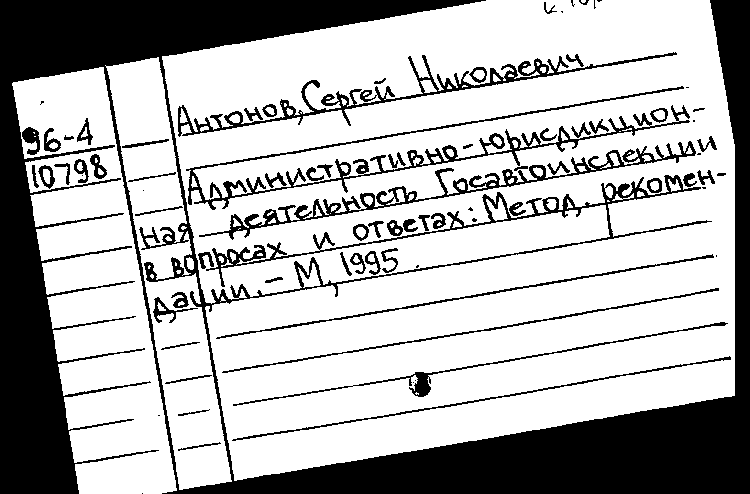 Антонов, Сергей Николаевич.
96-4
10798
Административно-юрисдикцион-
ная деятельность Госавтоинспекции
в вопросах и ответах: Метод. рекомен-
дации. - М, 1995